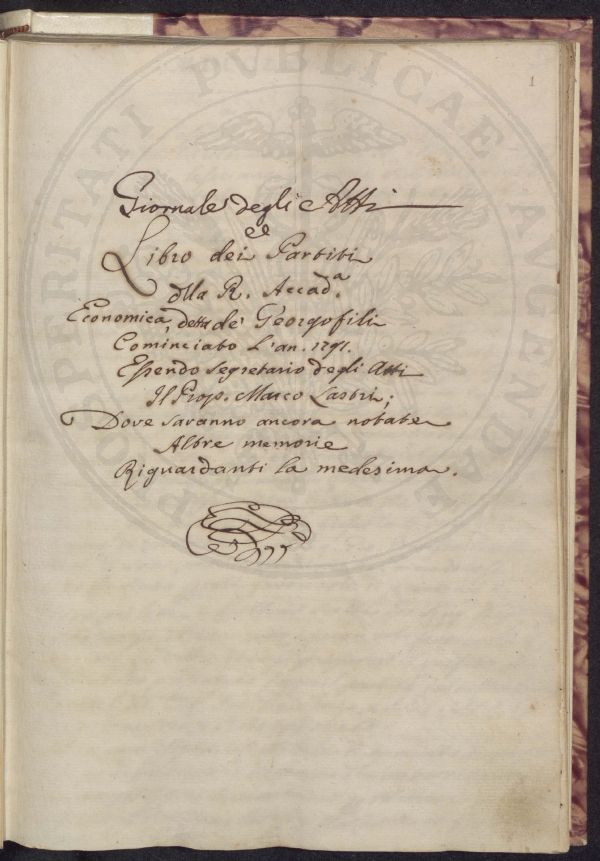 1
Giornale degli Atti
e
Libro dei Partiti
dlla R. Accad.a
Economica, detta de' Georgofili
Cominciato L'an. 1791.
Essendo segretario degli Atti
Il Prop. Marco Lastri;
Dove saranno ancora notate
Altre memorie
Riguardanti la medesima.
PROSPERITATI PVBLICAE AVGENDAE